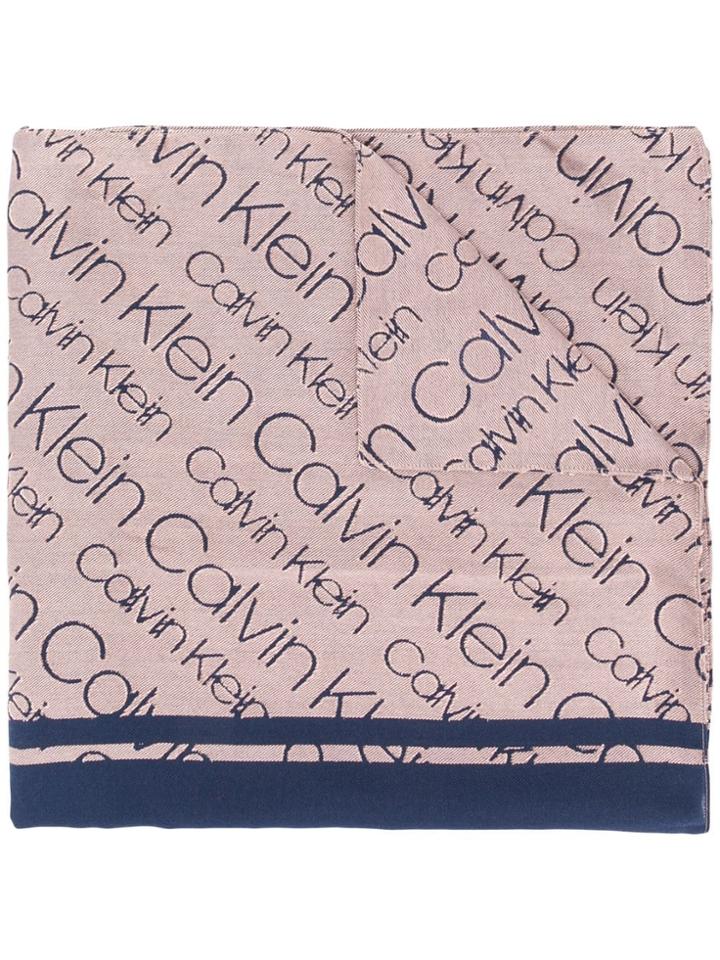 Calvin Klein
Calvin Klein
Calvin Klein
Calvin Klein
Calvin Klein
Calvin Klein Calvin Klein
Calvin Klein
Calvin Klein
Calvin Klein
Calvin Klein
Calvin Klein
Calvin Klein